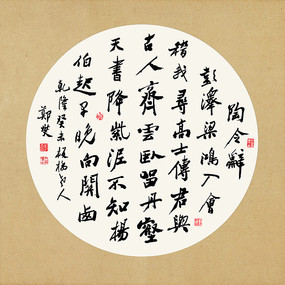 陶令辭
彭澤梁鴻入會
稽我尋高士傳君與
古人齊雲臥留丹壑
天書降紫泥不知楊
伯起早晚向關西
乾隆癸未板橋老人
鄭燮